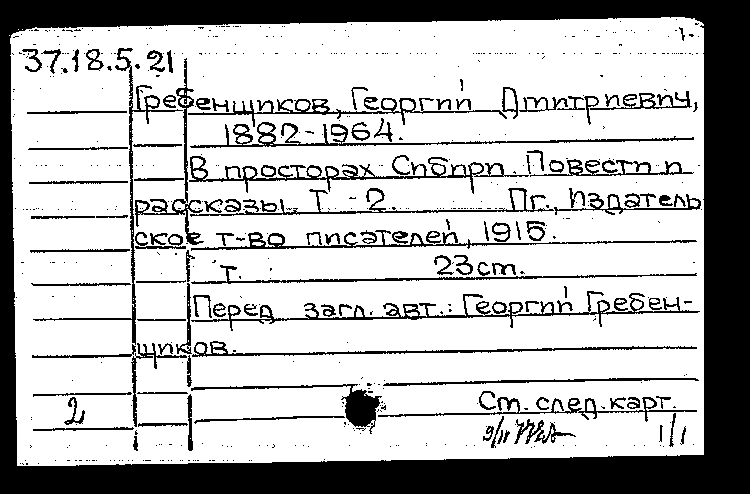 1.
37.18.5.21
Гребенщиков, Георгий Дмитриевич,
1882-1964.
В просторах Сибири. Повести и
рассказы. Т - 2. Пг., Издатель
ское т-во писателей, 1915.
т. 23cm.
Перед загл. авт.: Георгий Гребен-
щиков.
2 Cm. след. карт.
9/II 1/1